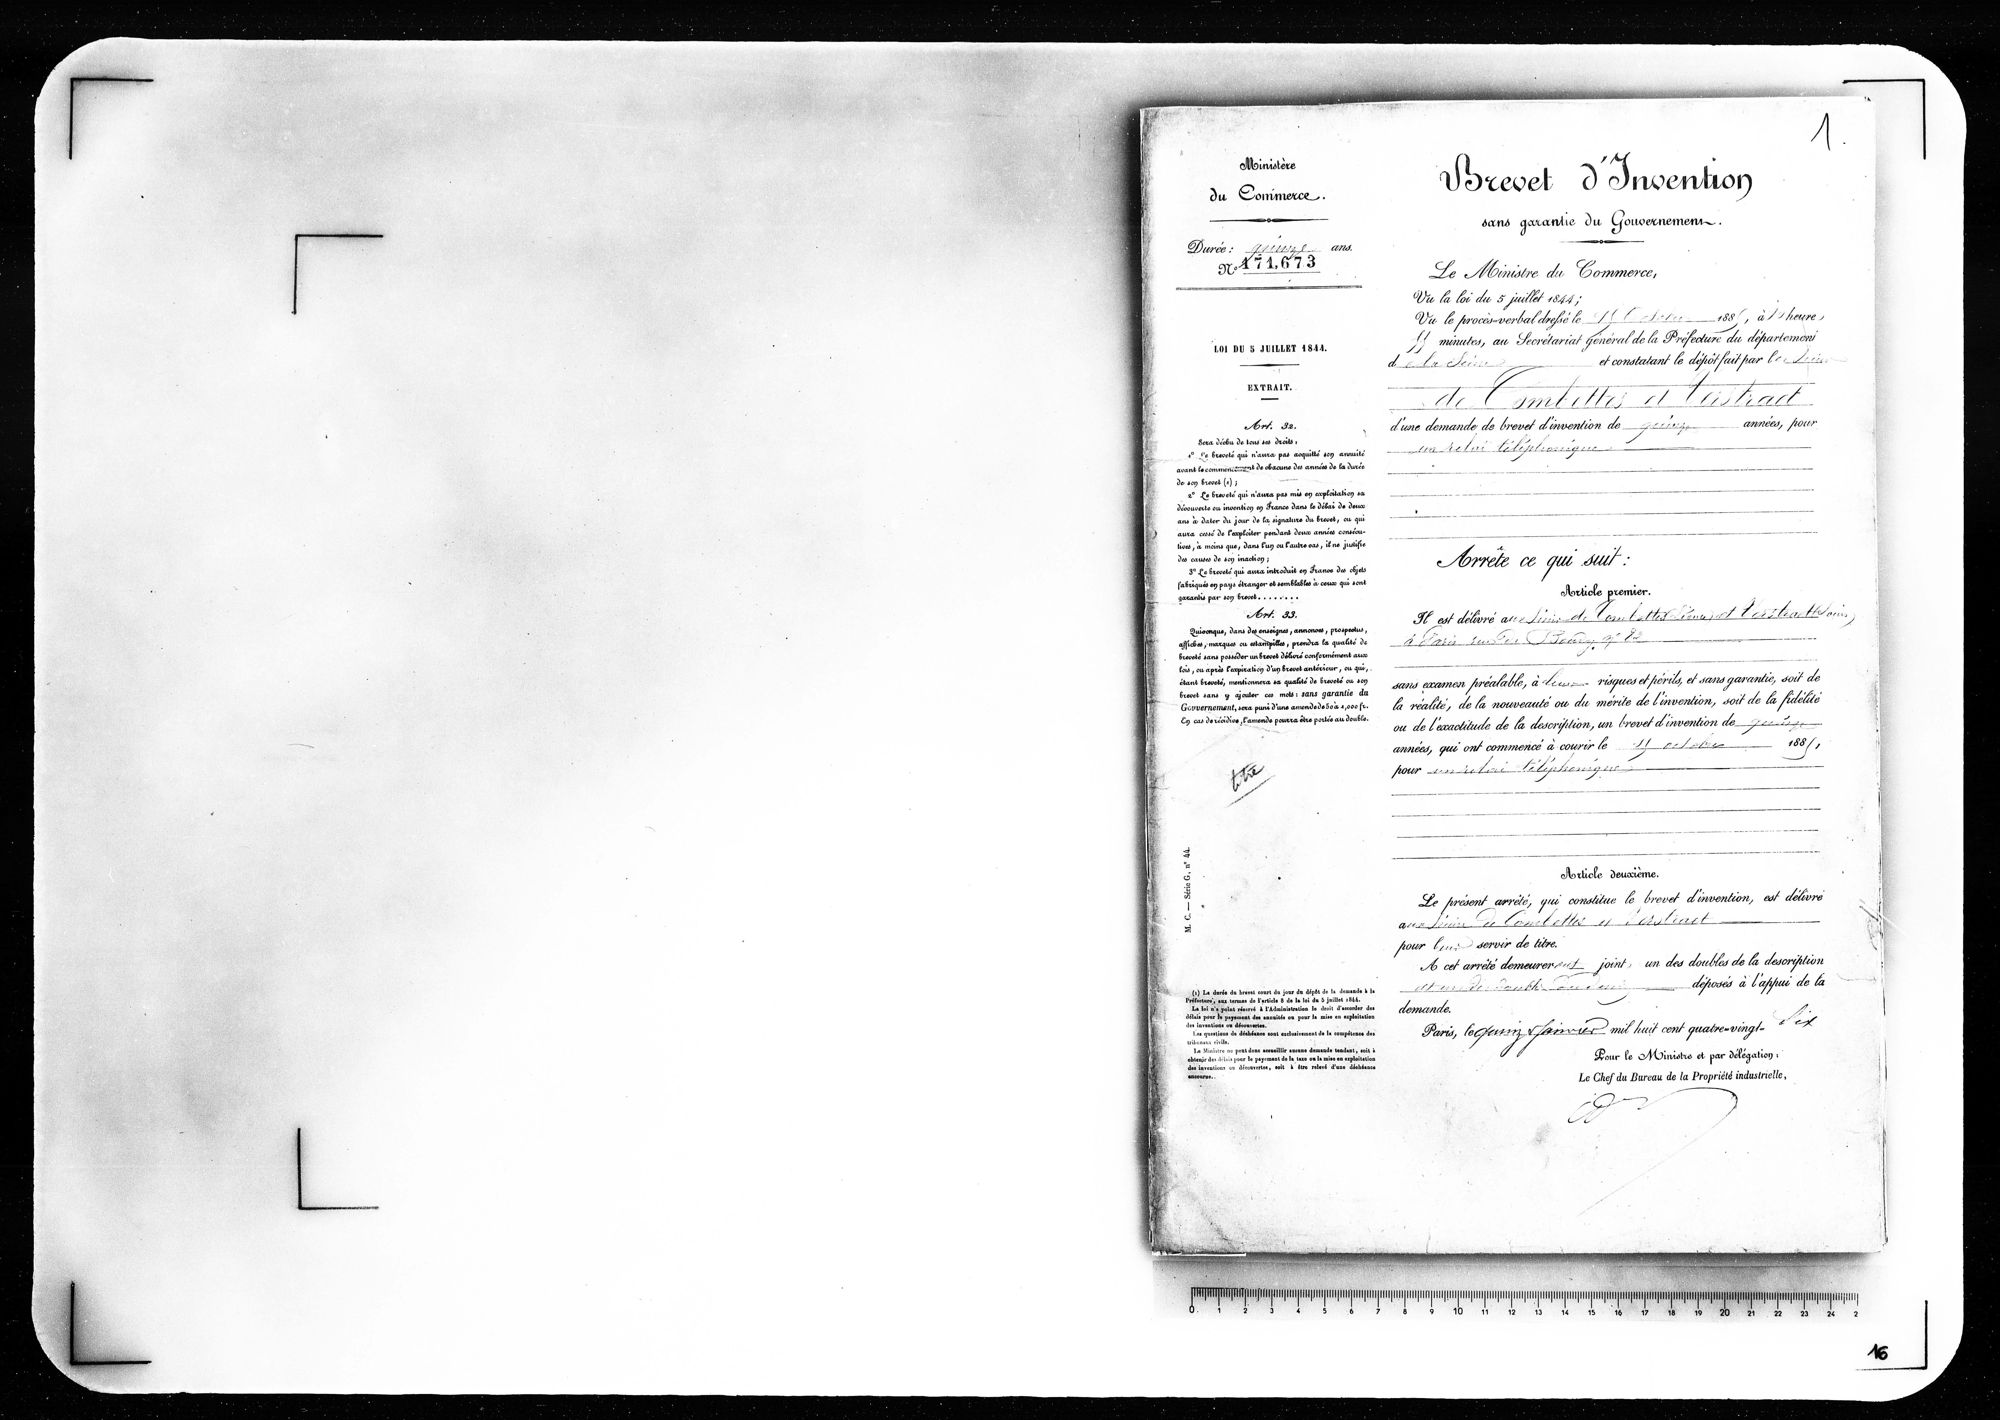 1.
Ministère
du Commerce.
Durée : quinze ans.
N° 171,673
LOI DU 5 JUILLET 1844.
EXTRAIT.
Art. 32.
Sera déchu de tous ses droits :
1° Le breveté qui n'aura pas acquitté son annuité
avant le commencement de chacune des années de la durée
de son brevet (1) ;
2° Le breveté qui n'aura pas mis en exploitation sa
découverte ou invention en France dans le délai de deux
ans à dater du jour de la signature du brevet, ou qui
aura cessé de l'exploiter pendant deux années consécu-
tives, à moins que, dans l'un ou l'autre cas, il ne justifie
des causes de son inaction ;
3° Le breveté qui aura introduit en France des objets
fabriqués en pays étranger et semblables à ceux qui sont
garantis par son brevet........
Art. 33.
Quiconque, dans des enseignes, annonces, prospectus,
affiches, marques ou estampilles, prendra la qualité de
breveté sans posséder un brevet délivré conformément aux
lois, ou après l'expiration d'un brevet antérieur, ou qui,
étant breveté, mentionnera sa qualité de breveté ou son
brevet sans y ajouter ces mots : sans garantie du
Gouvernement, sera puni d'une amende de 50 à 1,000 fr.
En cas de récidive, l'amende pourra être portée au double.
titre
M. C. — Série G, n° 44.
(1) La durée du brevet court du jour du dépôt de la demande à la
Préfecture, aux termes de l'article 8 de la loi du 5 juillet 1844.
La loi n'a point réservé à l'Administration le droit d'accorder des
délais pour le payement des annuités ou pour la mise en exploitation
des inventions ou découvertes.
Les questions de déchéance sont exclusivement de la compétence des
tribunaux civils.
Le Ministre ne peut donc accueillir aucune demande tendant, soit à
obtenir des délais pour le payement de la taxe ou la mise en exploitation
des inventions ou découvertes, soit à être relevé d'une déchéance
encourue.
Brevet d'Invention
sans garantie du Gouvernement.
Le Ministre du Commerce,
Vu la loi du 5 juillet 1844 ;
Vu le procès-verbal dressé le 1885, à heures
minutes, au Secrétariat général de la Préfecture du département
de la Seine et constatant le dépôt fait par les Sieurs
de Combettes et Verstraet
d'une demande de brevet d'invention de quinze années, pour
un relai téléphonique
Arrête ce qui suit :
Article premier.
Il est délivré aux Sieurs de Combettes et Verstraet (Louis)
à Paris rue n° 82
sans examen préalable, à leurs risques et périls, et sans garantie, soit de
la réalité, de la nouveauté ou du mérite de l'invention, soit de la fidélité
ou de l'exactitude de la description, un brevet d'invention de quinze
années, qui ont commencé à courir le octobre 1885,
pour un relai téléphonique
Article deuxième.
Le présent arrêté, qui constitue le brevet d'invention, est délivré
aux Sieurs de Combettes et Verstraet
pour leur servir de titre.
A cet arrêté demeureront joints un des doubles de la description
et un des doubles du dessin déposés à l'appui de la
demande.
Paris, le quinze Janvier mil huit cent quatre-vingt- six
Pour le Ministre et par délégation :
Le Chef du Bureau de la Propriété industrielle,
0 1 2 3 4 5 6 7 8 9 10 11 12 13 14 15 16 17 18 19 20 21 22 23 24 2
16